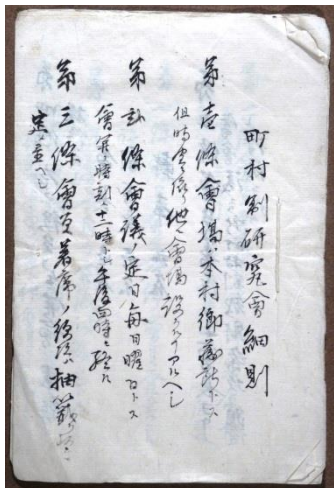 町村制研究會細則
第壱條會場ハ本村御蔵跡トス
但時宜ニ依リ他ニ會場設クルヿアルヘシ
第弐條會議ノ定日ハ毎日曜日トス
會議時刻ハ十二時トシ午後四時ニ終ル
第三條會員着席ノ順次ハ抽籤ヲ以テ
定ムヘシ